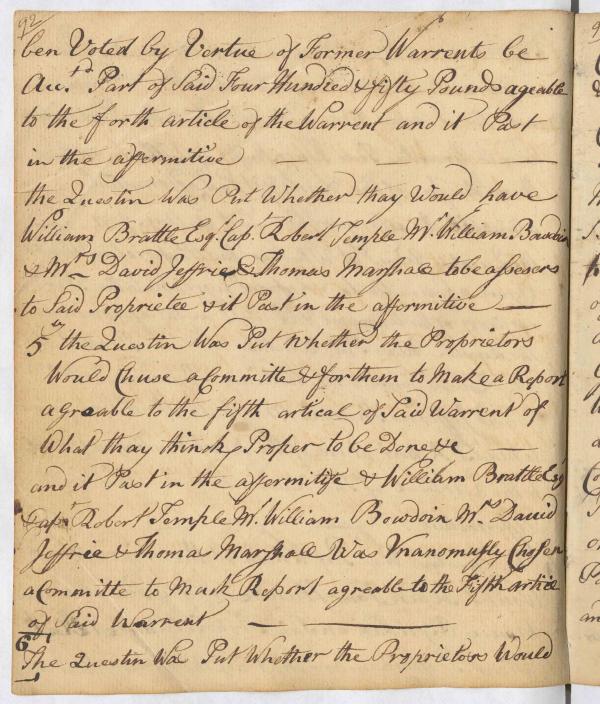 92
ben Voted by Vertue of Former Warrents be
Au.td Part of Said Four Hundred & fifty Pounds ageable
to the forth article of the Warrent and it Past
in the affermitive
the Questin Was Put Whether thay Would have
William Brattle Esqr Capt. Robert Temple Mr William Bowdoin
& Mrs David Jeffrie & Thomas Marshall to be assesers
to Said Proprietee & it Past in the affermitive
5ly the Questin Was Put Whether the Proprietors
Would Chuse a Committe & for them to Make a Report
agreable to the fifth artical of Said Warrent of
What thay think Proper to be Done &c
and it Past in the affermitife & William Brattle Esqr
Capt Robert Temple Mr William Bowdoin Mrs David
Jeffrie & Thomas Marshall Was Vnanomusly Chosen
a Committe to Mack Report agreable to the Fifth article
of Said Warrent
6
The Questin Was Put Whether the Proprietors Would